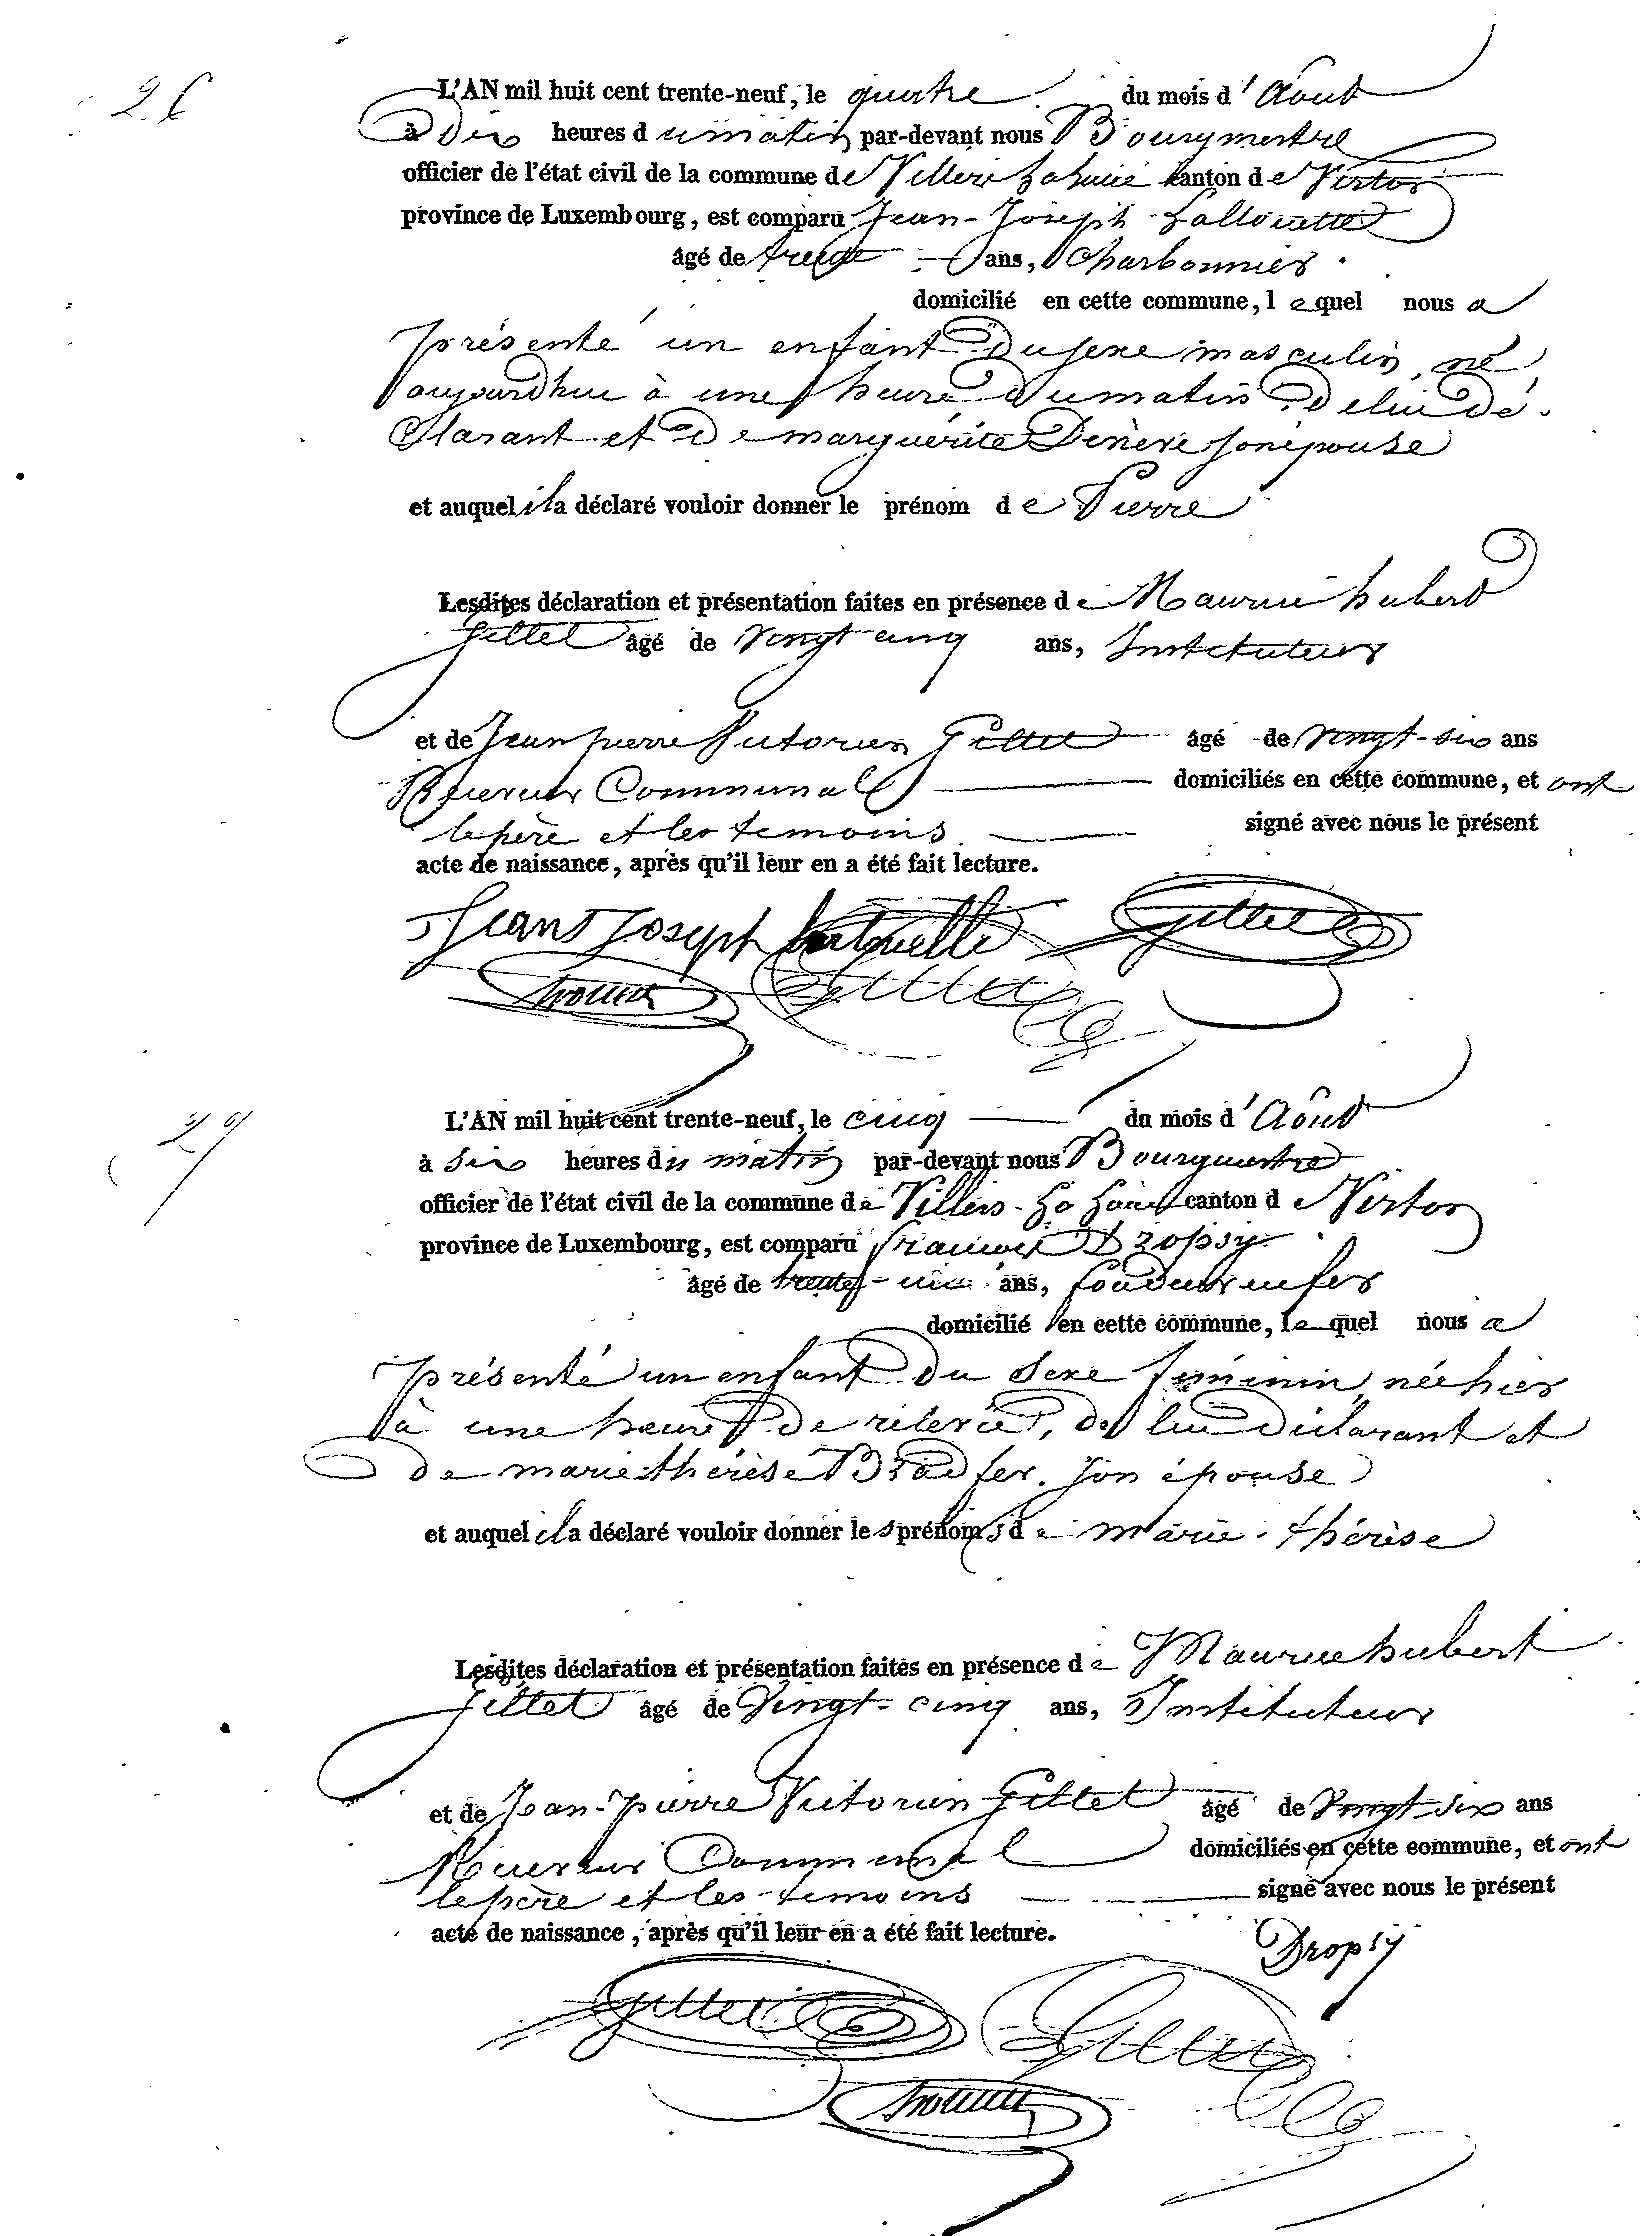 26
L'AN mil huit cent trente-neuf, le quatre du mois d'Août
à Dix heures du matin par-devant nous Bourgmestre
officier de l'état civil de la commune de Villers la Loue canton de Virton
province de Luxembourg, est comparu Jean-Joseph Lallouette
âgé de trente ans, Charbonnier
domicilié en cette commune, lequel nous a
présenté un enfant Du sexe masculin, né
aujourdhui à une heure Du matin De lui dé
Clarant et De marguérite son épouse
et auquel il a déclaré vouloir donner le prénom de Pierre
Lesdites déclaration et présentation faites en présence de Maurice hubert
Gillet âgé de Vingt cinq ans, Instituteur
et de Jean pierre Victorien Gillet âgé de Vingt-six ans
Receveur Communal domiciliés en cette commune, et ont
le père et les temoins signé avec nous le présent
acte de naissance, après qu'il leur en a été fait lecture.
Jean Joseph Gillet
Gillet
27
L'AN mil huit cent trente-neuf, le cinq du mois d'Août
à six heures du matin par-devant nous Bourgmestre
officier de l'état civil de la commune de Villers-La Loue canton de Virton
province de Luxembourg, est comparu François Dropsy
âgé de ans, fondeur en fer
domicilié en cette commune, lequel nous a
présenté un enfant Du sexe féminin, né hier
à une heure de relevée, de lui déclarant et
De marie-thérèse Bradfer son épouse
et auquel il a déclaré vouloir donner les prénoms de marie-thérèse
Lesdites déclaration et présentation faites en présence de Maurice hubert
Gillet âgé de Vingt-cinq ans, Instituteur
et de Jean-pierre Victorien Gillet âgé de Vingt-six ans
Receveur Communal domiciliés en cette commune, et ont
le père et les temoins signé avec nous le présent
acte de naissance, après qu'il leur en a été fait lecture.
Dropsy
Gillet Gillet